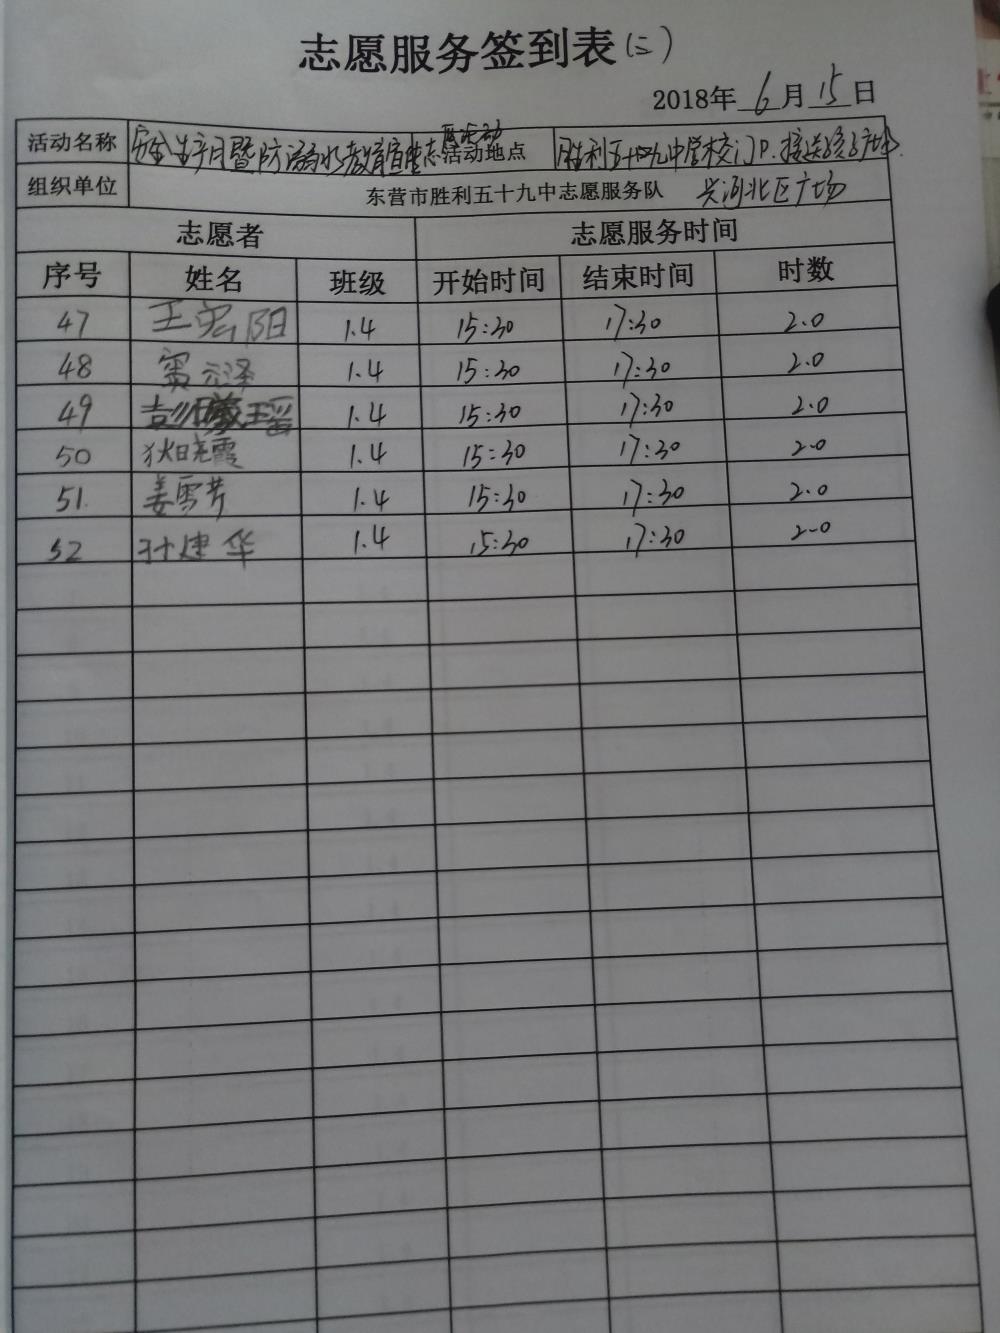 志愿服务签到表(二)
2018年 6 月 15 日
活动名称 安全生产月暨防溺水教育宣传志愿活动 活动地点 胜利五十九中学校门口.接送
组织单位 东营市胜利五十九中志愿服务队 兴河北区广场
志愿者 志愿服务时间
序号 姓名 班级 开始时间 结束时间 时数
47 王宏阳 1.4 15:30 17:30 2.0
48 窦元泽 1.4 15:30 17:30 2.0
49 1.4 15:30 17:30 2.0
50 狄晓霞 1.4 15:30 17:30 2.0
51. 姜雪芳 1.4 15:30 17:30 2.0
52 建华 1.4 15:30 17:30 2.0